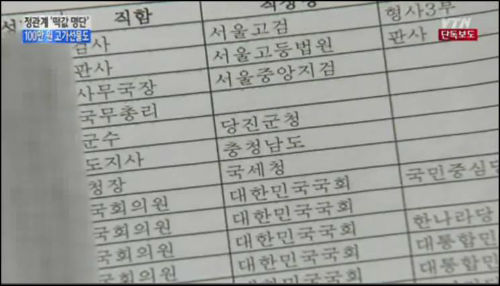 정관계 '떡값 명단'
100만 원 고가선물도
YTN
단독보도
직함
형사3부
검사 서울고검 판사
판사 서울고등법원
사무국장 서울중앙지검
국무총리
군수 당진군청
도지사 충청남도
청장 국세청
국회의원 대한민국국회 국민중심당
국회의원 대한민국국회
국회의원 대한민국국회 한나라당
국회의원 대한민국국회 대통합민
대한민국국회 대통합민